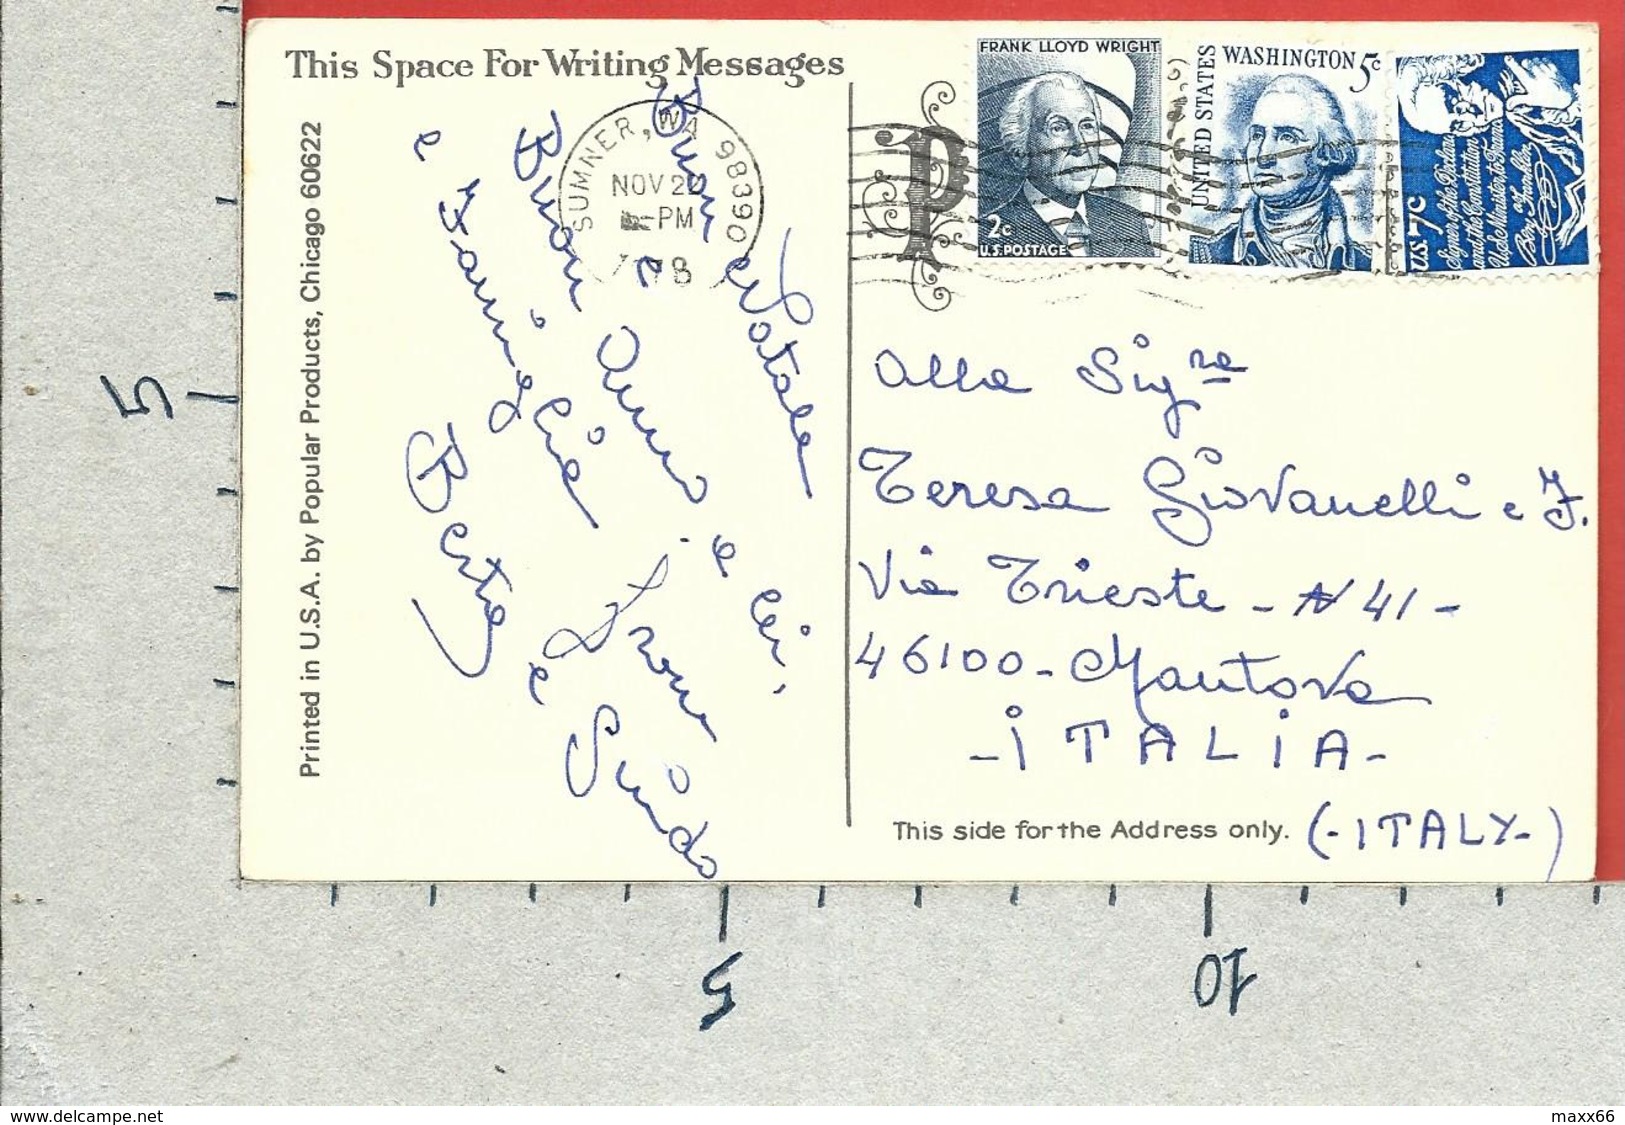 This Space For Writing Messages
Printed in U.S.A. by Popular Products, Chicago 60622
SUMNER, WA 98390
NOV 20
PM
78
FRANK LLOYD WRIGHT
2c
U.S. POSTAGE
UNITED STATES
WASHINGTON 5c
U.S. 7c
Signer of the Declaration
and the Constitution
Ben Franklin
P
Buon Natale
e
Buon Anno a Lei,
e Famiglia
Berta
e Guido
Alla Sig.ra
Teresa Giovanelli e F.
Via Trieste - N 41 -
46100 - Mantova
- ITALIA -
This side for the Address only.
(- ITALY -)
5
5
10
www.delcampe.net
maxx66